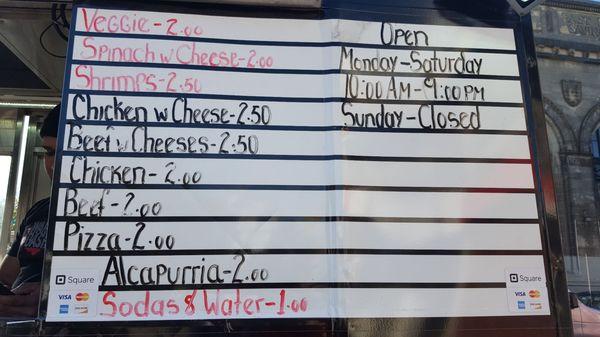 Veggie-2.00
Spinach w Cheese-2.00
Shrimps-2.50
Chicken w Cheese-2.50
Beef w Cheeses-2.50
Chicken-2.00
Beef-2.00
Pizza-2.00
Alcapurria-2.00
Sodas & Water-1.00
Open
Monday-Saturday
10:00 AM-9:00 PM
Sunday-Closed
Square
VISA
Square
VISA